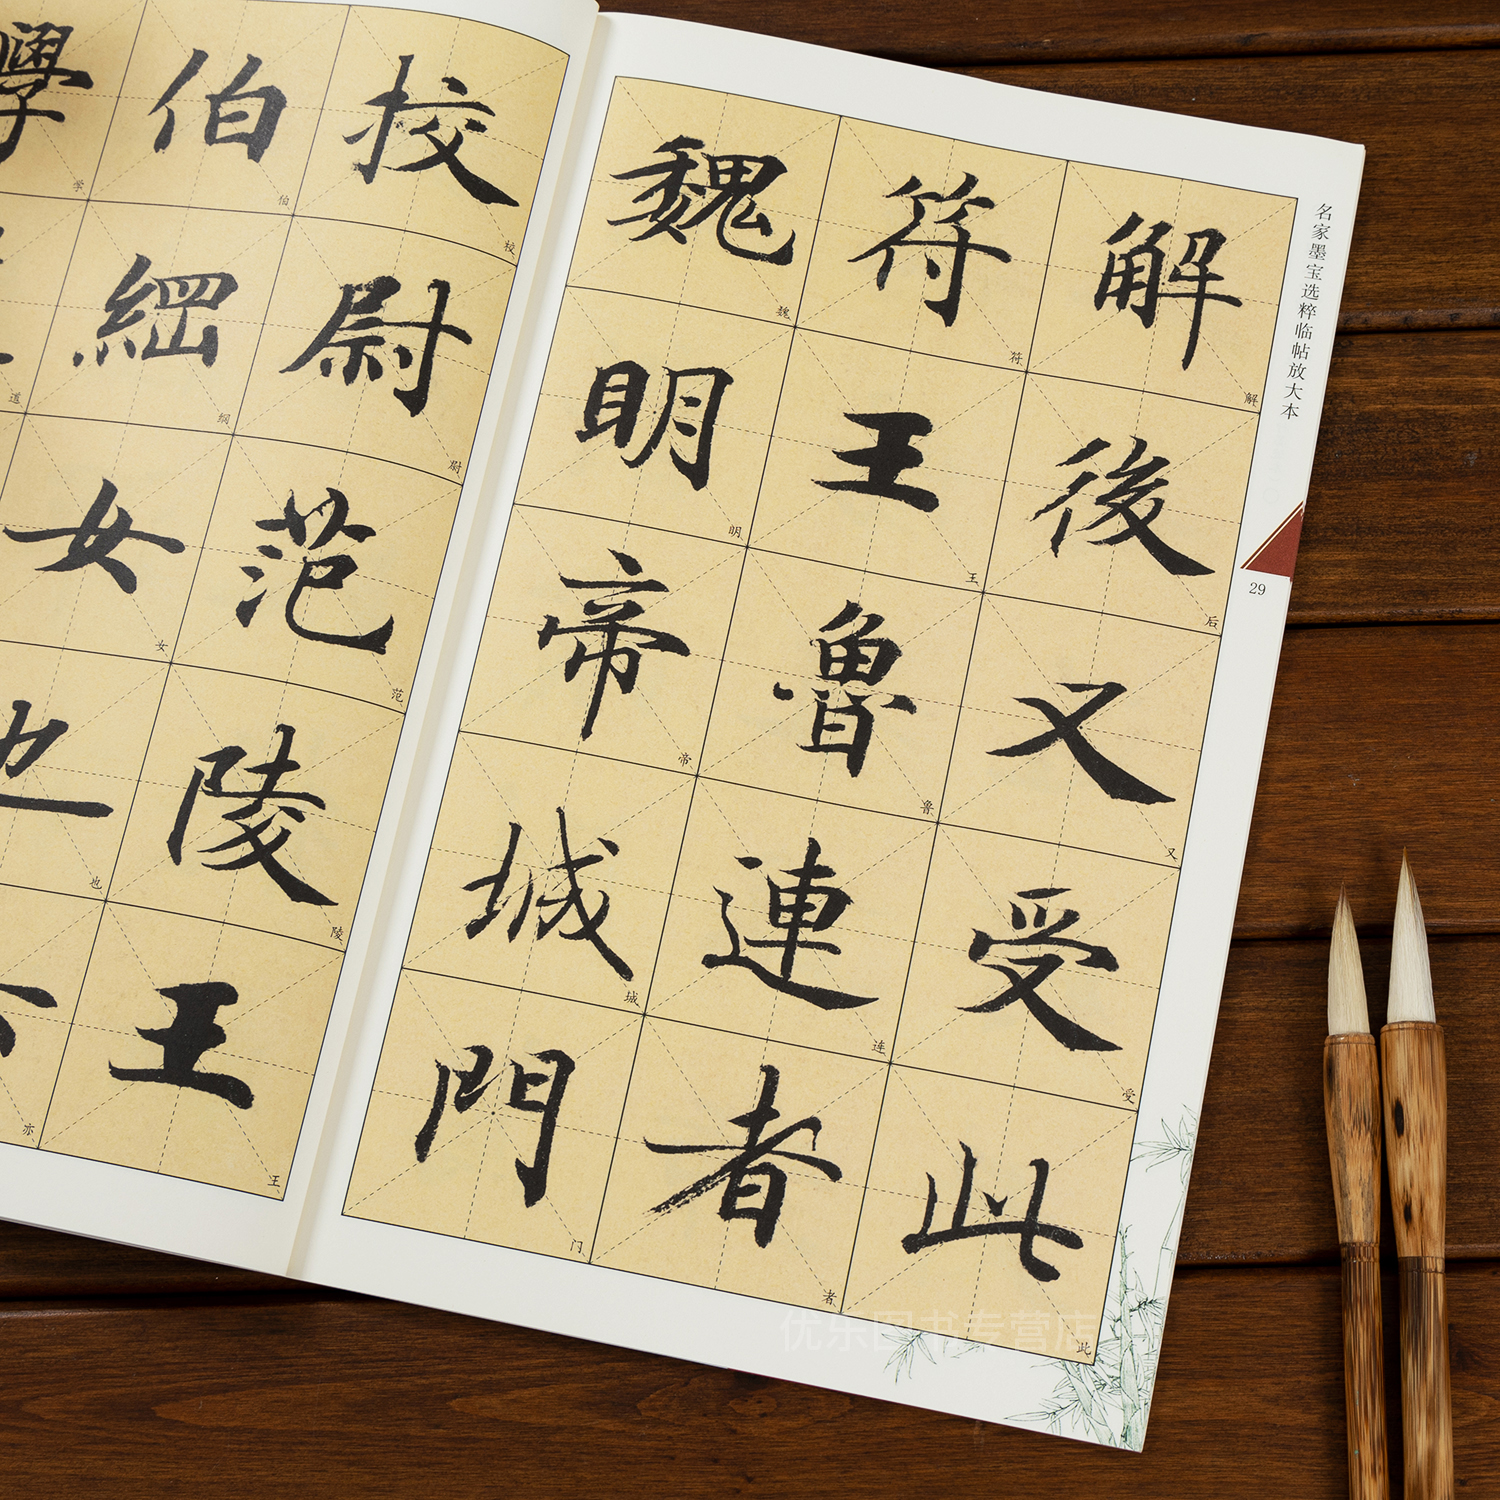 名家墨宝选粹临帖放大本
29
解後又受此
解后又受此
符王魯連者
符王鲁连者
魏明帝城門
魏明帝城门
校尉范陵王
校尉范陵王
伯綱女也亦
伯纲女也亦
學
学
道
优乐图书专营店